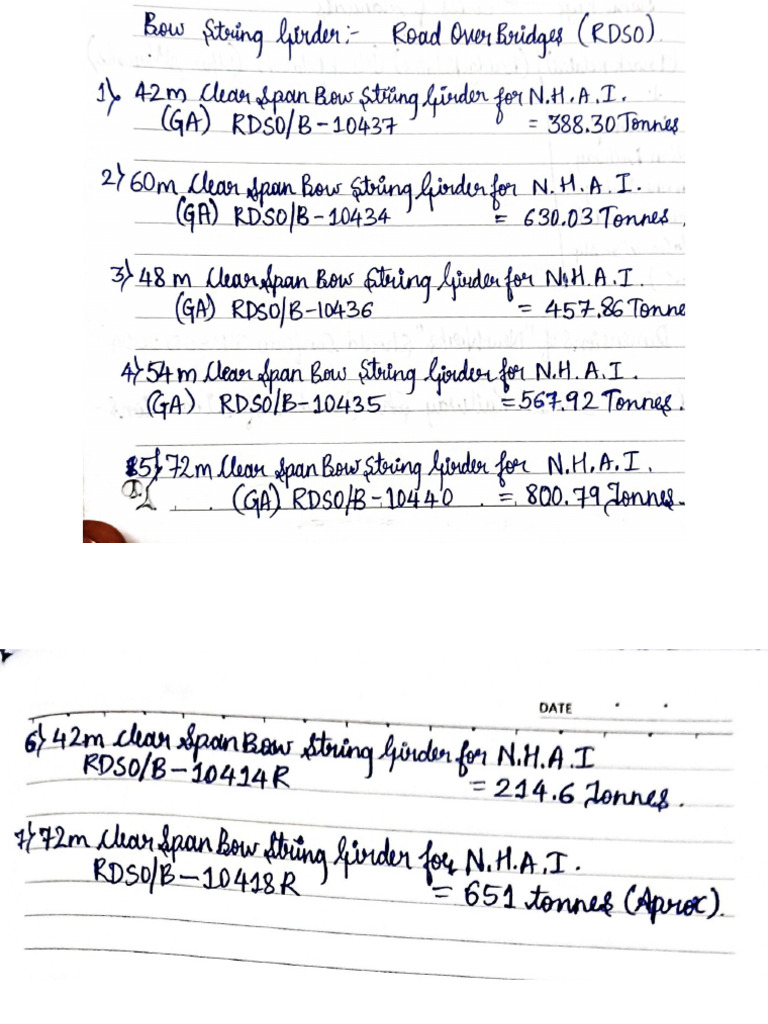 Bow String Girder:- Road Over Bridges (RDSO)
1) 42m Clear Span Bow String Girder for N.H.A.I.
(GA) RDSO/B-10437 = 388.30 Tonnes
2) 60m Clear Span Bow String Girder for N.H.A.I.
(GA) RDSO/B-10434 = 630.03 Tonnes.
3) 48m Clear Span Bow String Girder for N.H.A.I.
(GA) RDSO/B-10436 = 457.86 Tonne
4) 54m Clear Span Bow String Girder for N.H.A.I.
(GA) RDSO/B-10435 =567.92 Tonnes.
5) 72m Clear Span Bow String Girder for N.H.A.I.
(GA) RDSO/B-10440 = 800.79 Tonnes.
DATE
6) 42m Clear Span Bow String Girder for N.H.A.I
RDSO/B-10414R = 214.6 Tonnes.
7) 72m Clear Span Bow String Girder for N.H.A.I.
RDSO/B-10418R = 651 tonnes (Aprox).